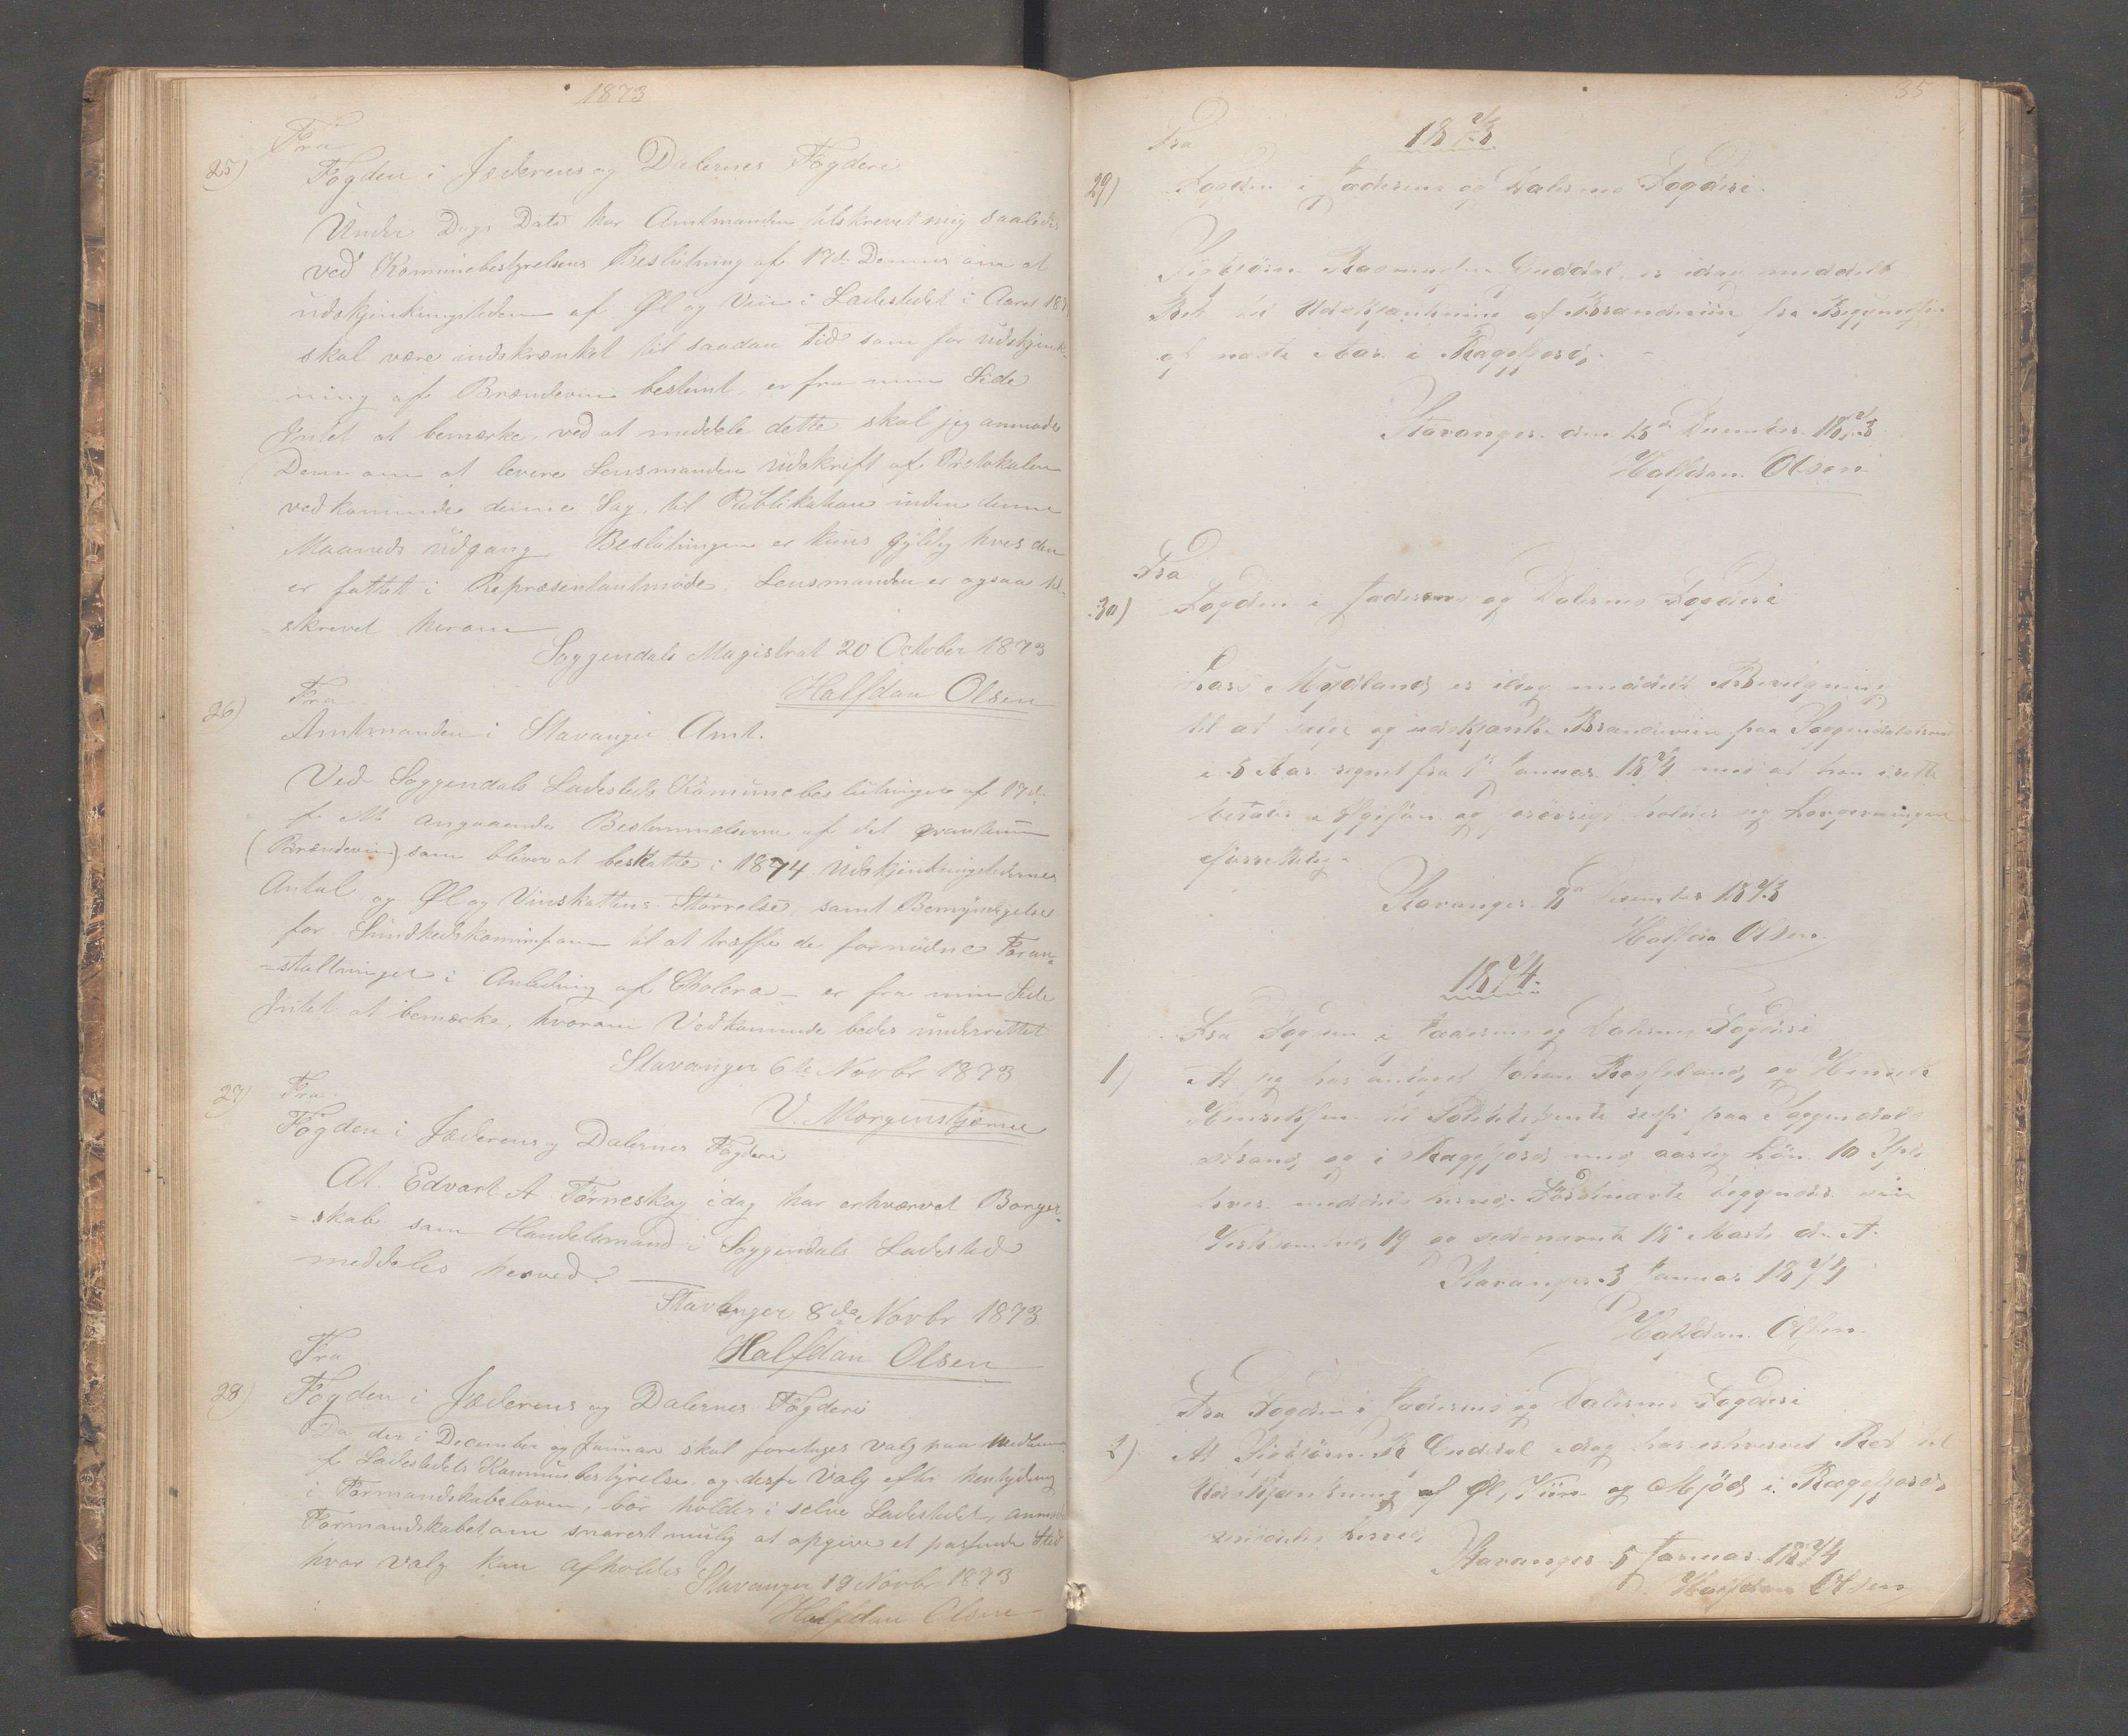 1873
Fra
25) Fogden i Jæderens og Dalernes Fogderi
Under Dags Dato har Amtmanden tilskrevet mig saaledes
ved Kommunebestyrelsens Beslutning af 17de Dennes om at
udskjenkningstiden af Øl og Viin i Ladestedet i Aaret 187
skal være indskrænket til saadan Tid som for udskjenk-
ning af Brændeviin bestemt, er fra min Side
Intet at bemærke, ved at meddele dette skal jeg anmode
Dem om at levere Lensmanden Udskrift af Protokolen
vedkommende denne Sag, til Publikation inden denne
Maaneds Udgang. Beslutningen er kuns gyldig hvis den
er fattet i Repræsentantmøde, Lensmanden er ogsaa til-
=skrevet herom
Soggendals Magistrat 20 October 1873
Halfdan Olsen
Fra
26) Amtmanden i Stavanger Amt.
Ved Soggendals Ladesteds Komunebeslutninger af 17de
f. M. angaaende Bestemmelsen af det qvantum
(Brændeviin), som bliver at beskatte i 1874 Udskjenkningstedernes
Antal og Øl og Vinskattens Störrelse, samt Bemyndigelse
for Sundhedskommissionen til at træffe de fornödne Foran=
=staltninger i Anledning af Cholera – er fra min Side
Intet at bemærke, hvorom Vedkommende bedes underrettet
Stavanger 6te Novbr 1873
V. Morgenstjerne
27) Fra
Fogden i Jæderens og Dalernes Fogderi
At Edvart A Törneskog idag har erhværvet Borger=
=skab som Handelsmand i Soggendals Ladested
meddeles herved.
Stavanger 8de Novbr 1873
Halfdan Olsen
Fra
28) Fogden i Jæderens og Dalernes Fogderi
Da der i December og Januar skal foretages Valg paa Medlem
f Ladestedets Kommunebestyrelse og disse Valg efter hentydning
i Formandskabsloven, bör holdes i selve Ladestedet, anmodes
Formandskabet om snarest mulig at opgive et passende Sted
hvor Valg kan afholdes
Stavanger 19 Novbr 1873
Halfdan Olsen
35
1873
Fra
29) Fogden i Jæderens og Dalernes Fogderi.
Sigbjörn Rasmusen Guddal, er idag meddelt
Ret til Udskjænkning af Brændeviin fra Begyndelsen
af næste Aar i Rægefjord.
Stavanger den 18de December 1873
Halfdan Olsen
Fra
30) Fogden i Jæderens og Dalernes Fogderi
Lars Mydland er idag meddelt Bevilgning
til at sælge og udskjænke Brændeviin paa Soggendalstrand
i 5 Aar regnet fra 1ste Januar 1874 med at han i rette
betaler Afgiften og forövrigt holder sig Lovgivningen
efterrettelig.
Stavanger December 1873
Halfdan Olsen
1874.
Fra Fogden i Jæderens og Dalernes Fogderi
1) At jeg har antaget Johan Rosseland, og Henrik
Henriksen til Politibetjente resp: paa Soggendals
strand, og i Rægefjord med aarlig Lön 10 Spd
hver meddeles herved. Förstnævnte begynder sin
Virksomhed 19 og sidstnævnte 15 Marts d. A.
Stavanger 3 Januar 1874
Halfdan Olsen.
Fra Fogden i Jæderens og Dalernes Fogderi
2) At Sigbjörn R Guddal idag har erhvervet Ret til
Udskjænkning af Øl, Viin og Mjöd i Rægefjord,
meddeles herved
Stavanger 5 Januar 1874
Halfdan Olsen